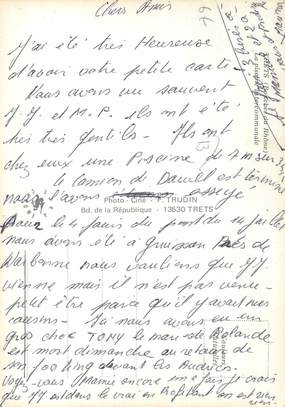 Chers Amis
J'ai été très Heureuse
d'avoir votre petite carte
Nous avons vu souvent
J.J. et M.P. ils ont été
très très gentils - Ils ont
chez eux une Piscine de 7 m sur 3
le camion de Daniel est terminé
nous l'avons essayé
Photo - Ciné - F. TRUDIN
Bd. de la République - 13530 TRETS
Pour les 4 jours du pont du 14 juillet
nous avons été à Gruissan Près de
Narbonne nous voulions que JJ
vienne mais il n'est pas venu
peut être parce qu'il y avait mes
cousins - Ici nous avons eu un
gros choc TONY le mari de Rolande
est mort dimanche au retour de
son footing devant les
voyez-vous Mamie encore une fois je crois
que JJ est dans le vrai en Profitant on est rien
rien -